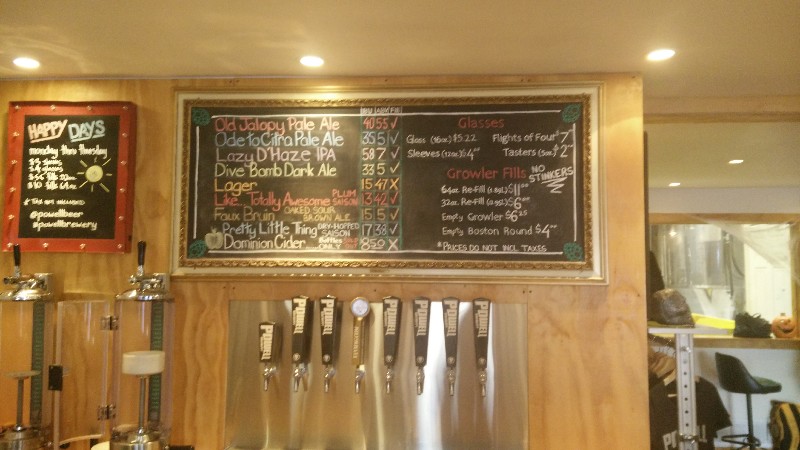 HAPPY DAYS
monday thru thursday
@powellbeer
@powellbrewery
IBU ABV FIL
Old Jalopy Pale Ale 40 5.5 ✓
Ode to Citra Pale Ale 35 5 ✓
Lazy D'Haze IPA 58 7 ✓
Dive Bomb Dark Ale 33 5 ✓
Lager 15 4.7 X
Like... Totally Awesome PLUM SAISON 13 4.2 ✓
Faux Bruin OAKED SOUR BROWN ALE 15 5 ✓
Pretty Little Thing DRY-HOPPED SAISON 17 3.8 ✓
Dominion Cider Bottles ONLY 8 5.9 X
Glasses
Glass (16oz) $5.22 Flights of Four $7
Sleeves (12oz) $4 Tasters (5oz) $2
Growler Fills NO STINKERS
64oz Re-Fill (1.89L) $11
32oz Re-Fill (0.95L) $6
Empty Growler $6.25
Empty Boston Round $4
*PRICES DO NOT INCL TAXES
Powell
Powell
Powell
Powell
Powell
Powell
Powell